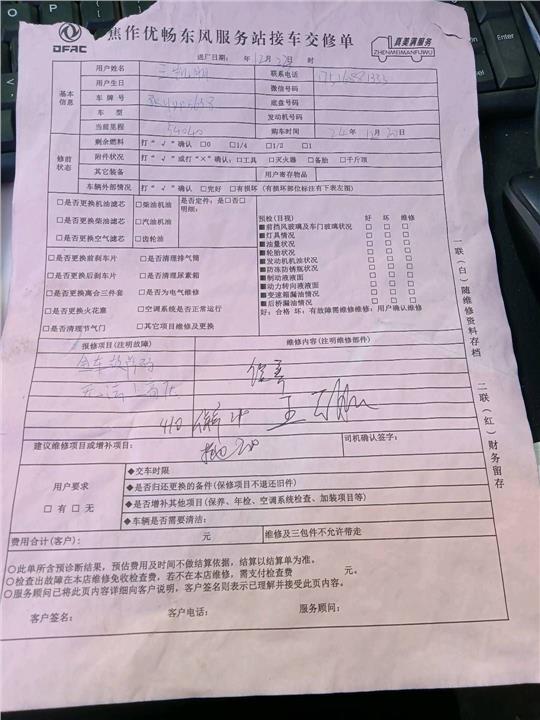 DFAC
焦作优畅东风服务站接车交修单
真美满服务
ZHENMEIMANFUWU
送厂日期: 年 12月 日 时
基本信息
用户姓名
联系电话
用户生日
微信号码
车 牌 号
底盘号码
车 型
发动机号码
当前里程
54040
购车时间
24年 11月 日
修前状态
剩余燃量 打“√”确认 □0 □1/4 □1/2 □1
附件状况 打“√”或打“×”确认:□工具 □灭火器 □备胎 □千斤顶
其它装备
用户寄存物品
车辆外部情况 打“√”确认 □完好 □有损坏(有损坏部位标注有下表左图)
□是否更换机油滤芯 □柴油机油 是否定件:是□否□
□是否更换柴油滤芯 □汽油机油 明细:
□是否更换空气滤芯 □齿轮油
□是否更换前刹车片 □是否清理排气筒
□是否更换后刹车片 □是否清理尿素箱
□是否更换离合三件套 □是否为电气维修
□是否更换火花塞 □空调系统是否正常运行
□是否清理节气门 □其它项目维修及更换
预检(目视) 好 坏 维修
■前挡风玻璃及车门玻璃状况 □ □ □
■灯具情况 □ □ □
■油量状况 □ □ □
■轮胎状况 □ □ □
■发动机机油状况 □ □ □
■防冻防锈瓶状况 □ □ □
■制动液液面 □ □ □
■动力转向液液面 □ □ □
■变速箱漏油情况 □ □ □
■后桥漏油情况 □ □ □
好:合格 坏:有故障需维修维修:用户确认维修
报修项目(注明故障)
维修内容(注明维修部件)
建议维修项目或增补项目:
司机确认签字:
用户要求
□有 □无
◆交车时限
◆是否归还更换的备件(保修项目不退还旧件)
◆是否增补其他项目(保养、年检、空调系统检查、加装项目等)
◆车辆是否需要清洁:
费用合计(客户): 元
维修及三包件不允许带走
○此单所含预诊断结果,预估费用及时间不做结算依据,结算以结算单为准。
○检查出故障在本店维修免收检查费,若不在本店维修,需支付检查费 元。
○服务顾问已将此页内容详细向客户说明,客户签名则表示已理解并接受此页内容。
客户签名: 客户电话: 服务顾问:
一联(白)随维修资料存档
二联(红)财务留存